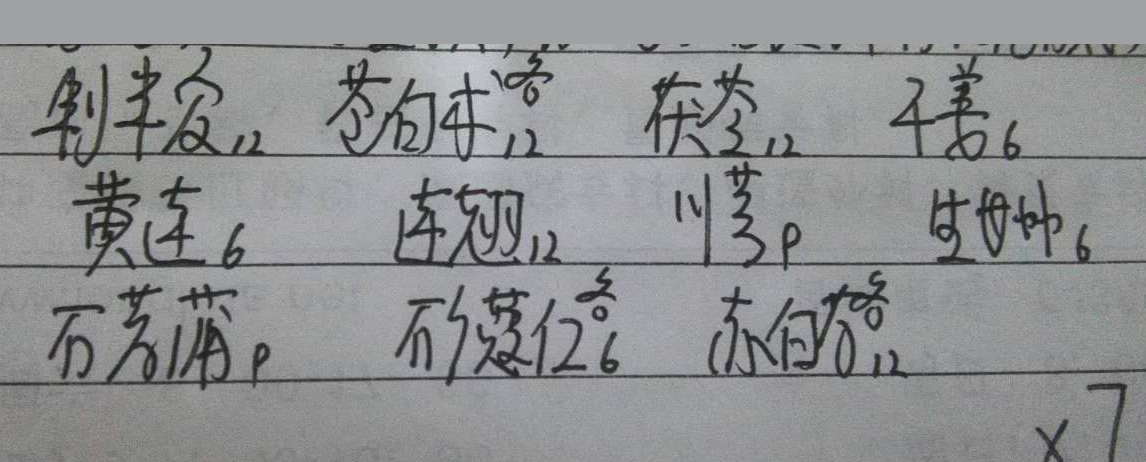 制半夏12 苍白术各12 茯苓12 干姜6
黄连6 连翘12 川芎9 生甘草6
石菖蒲9 砂蔻仁各6 赤白芍各12
×7